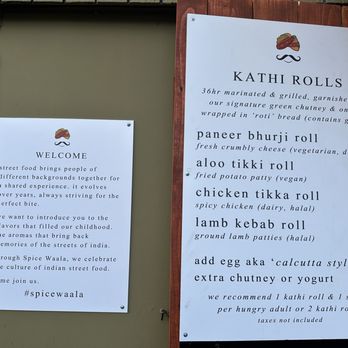 WELCOME
street food brings people of
different backgrounds together for
a shared experience. it evolves
over years, always striving for the
perfect bite.
we want to introduce you to the
flavors that filled our childhood.
the aromas that bring back
memories of the streets of india.
through Spice Waala, we celebrate
the culture of indian street food.
come join us.
#spicewaala
KATHI ROLLS
36hr marinated & grilled, garnishe
our signature green chutney & on
wrapped in 'roti' bread (contains g
paneer bhurji roll
fresh crumbly cheese (vegetarian, d
aloo tikki roll
fried potato patty (vegan)
chicken tikka roll
spicy chicken (dairy, halal)
lamb kebab roll
ground lamb patties (halal)
add egg aka 'calcutta styl
extra chutney or yogurt
we recommend 1 kathi roll & 1 s
per hungry adult or 2 kathi rol
taxes not included